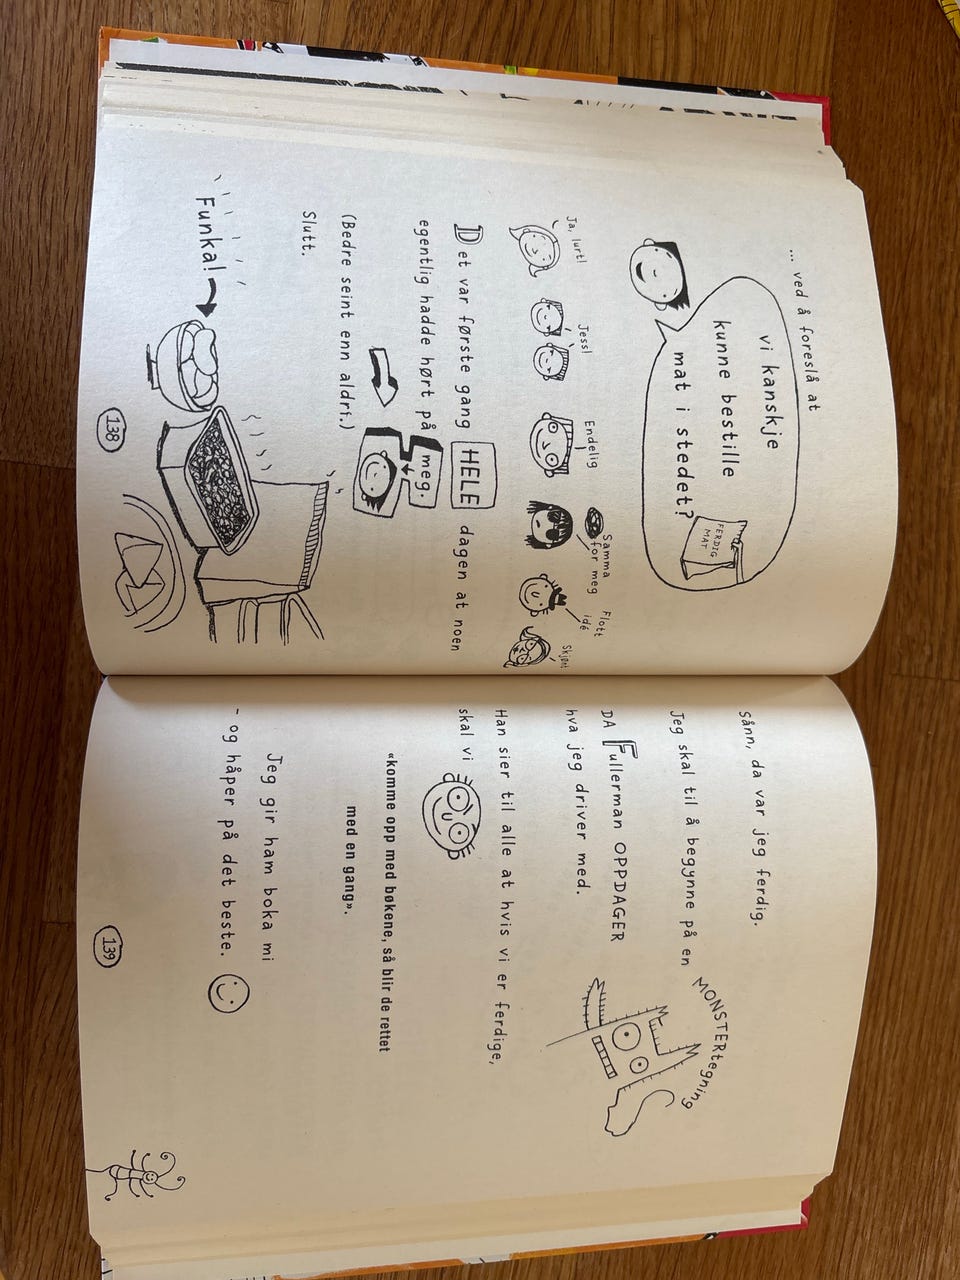 ... ved å foreslå at
vi kanskje
kunne bestille
mat i stedet?
FERDIG
MAT
Ja, lurt!
Jess!
Endelig
Samma
for meg
Flott
idé
Skjønt
Det var første gang HELE dagen at noen
egentlig hadde hørt på meg.
(Bedre seint enn aldri.)
Slutt.
Funka!
138
Sånn, da var jeg ferdig.
Jeg skal til å begynne på en MONSTERtegning
DA Fullerman OPPDAGER
hva jeg driver med.
Han sier til alle at hvis vi er ferdige,
skal vi
«komme opp med bøkene, så blir de rettet
med en gang».
Jeg gir ham boka mi
- og håper på det beste.
139